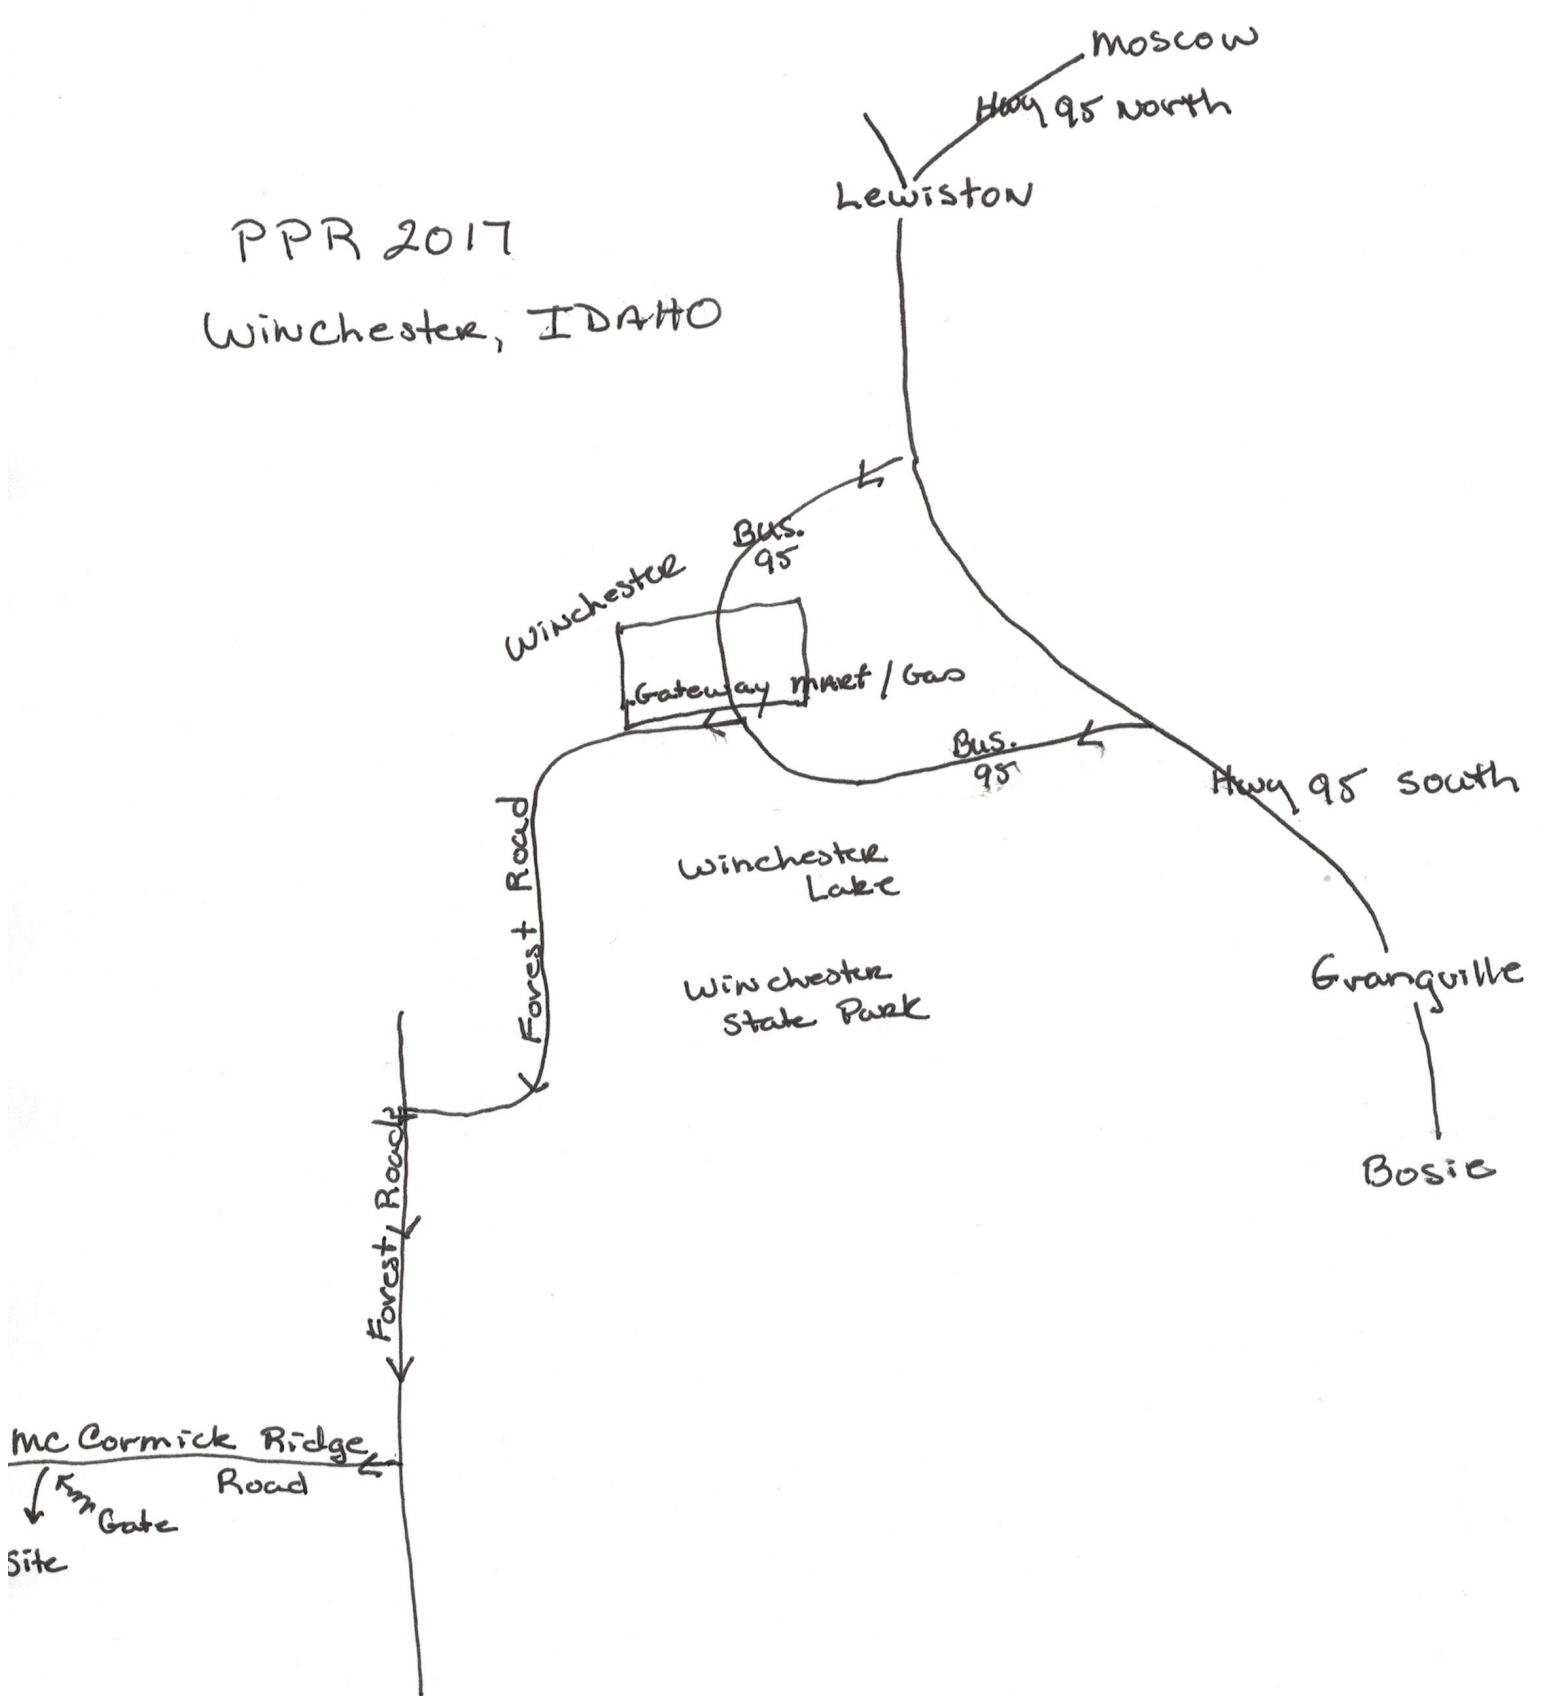 Moscow
Hwy 95 North
Lewiston
PPR 2017
Winchester, IDAHO
Bus.
95
Winchester
Gateway Mart / Gas
Bus.
95
Hwy 95 South
Forest Road
Winchester
Lake
Winchester
State Park
Grangville
Bosie
Forest Road
Mc Cormick Ridge
Road
Gate
Site